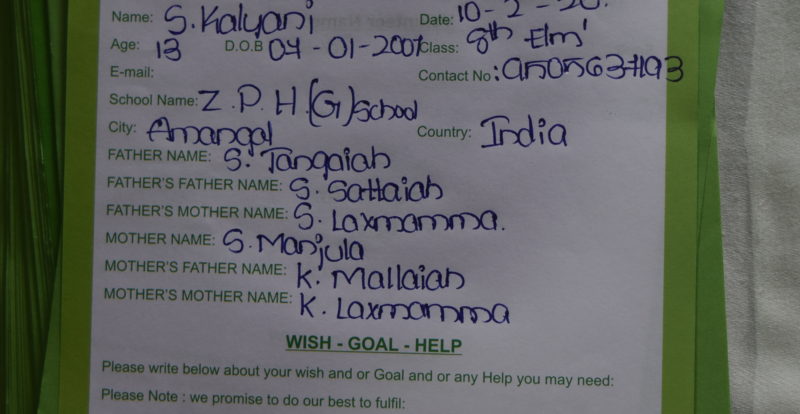 Name: S. Kalyani Date: 10-2-20.
Age: 13 D.O.B 04-01-2007 Class: 8th Elm'
E-mail: Contact No:
School Name: Z.P.H.(G) School
City: Amangal Country: India
FATHER NAME: S. Tangaiah
FATHER'S FATHER NAME: S. Sattaiah
FATHER'S MOTHER NAME: S. Laxmamma.
MOTHER NAME: S. Manjula
MOTHER'S FATHER NAME: K. Mallaiah
MOTHER'S MOTHER NAME: K. Laxmamma
WISH - GOAL - HELP
Please write below about your wish and or Goal and or any Help you may need:
Please Note : we promise to do our best to fulfil: